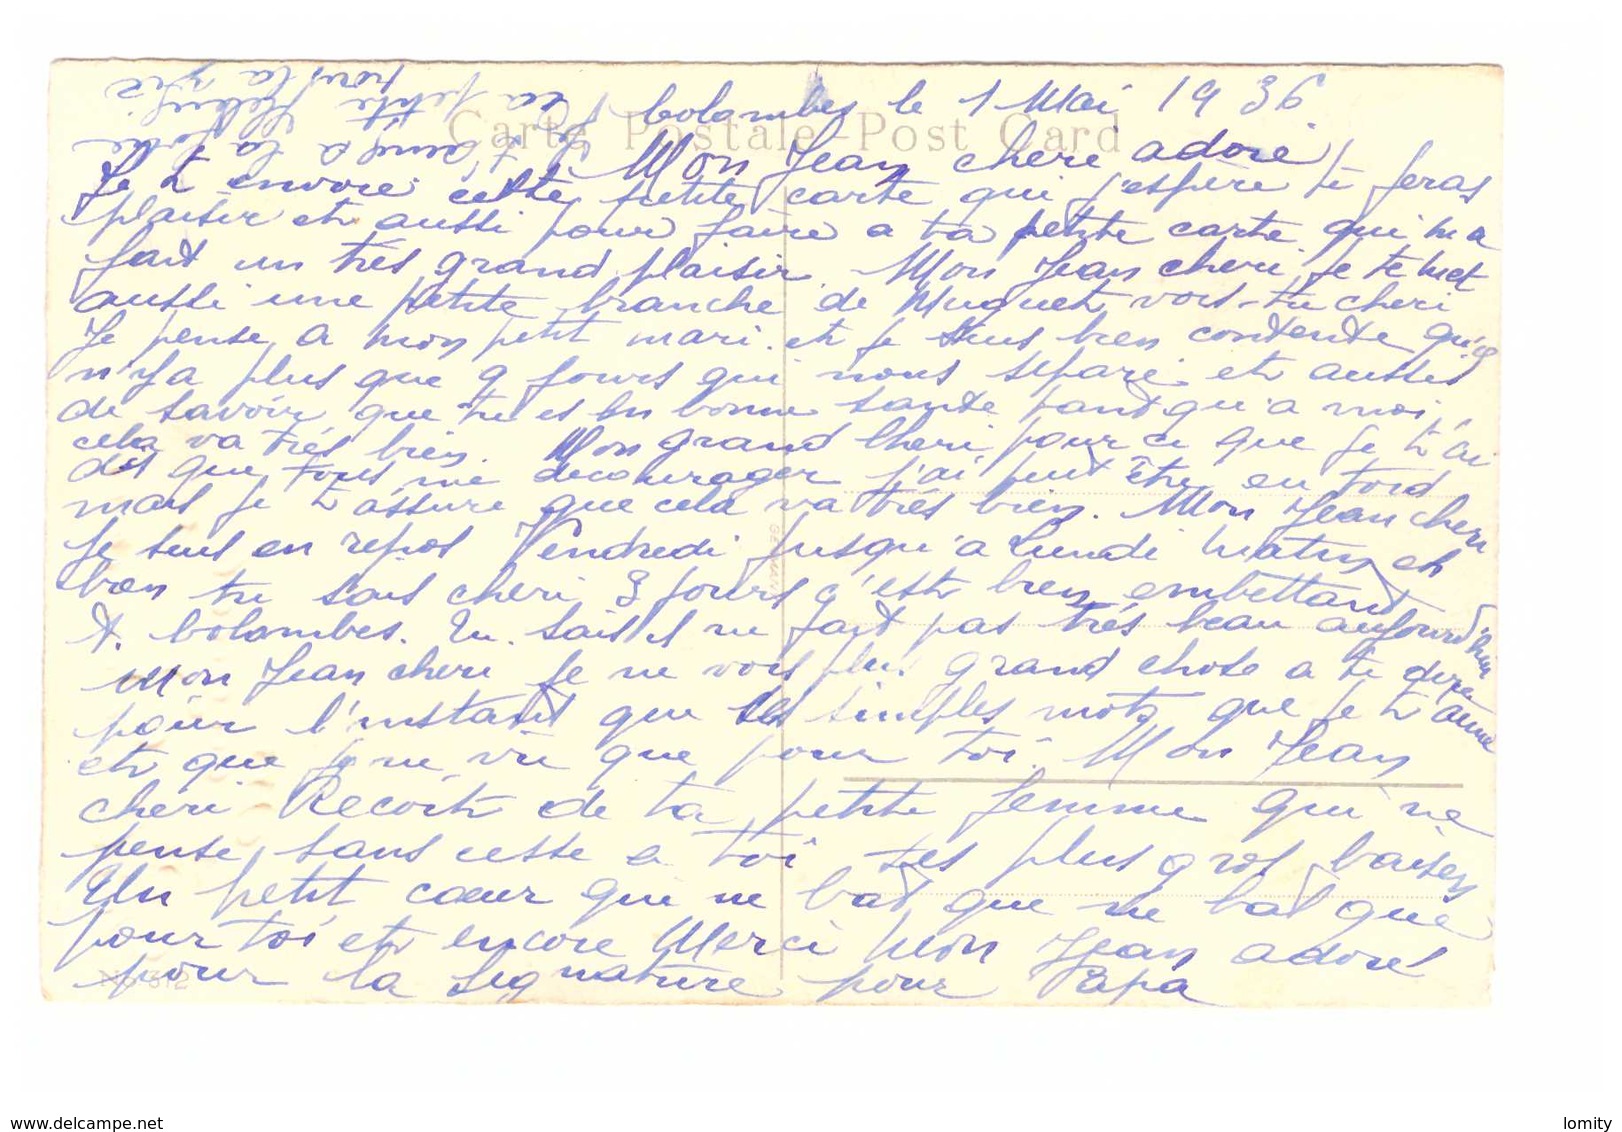 Colombes le 1 Mai 1936
Carte Postale - Post Card
Mon Jean cheri adoré
Je t envoie cette petite carte qui j'espère te feras
plaisir et aussi pour faire a ta petite carte qui m a
fait un très grand plaisir. Mon Jean cheri je te met
aussi une petite branche de Muguet vois-tu cheri
Je pense a mon petit mari. et je suis bien contente qu'il
n'y a plus que 9 jours qui nous separe et aussi
de savoir que tu es en bonne santé tant qu'a moi
cela va très bien. Mon grand cheri pour ce que je t'ai
dit que tous me decourager j'ai peut être eu tord
mais je t'assure que cela va très bien. Mon Jean cheri
Je suis en repos Vendredi jusqu'a Lundi matin et
bien tu sais cheri 3 jours c'est bien embettant
A. Colombes. Tu sais il ne fait pas très beau aujourd'hui
Mon Jean cheri Je ne vois plus grand chose a te dire
pour l'instant que ses simples mots que je t'aime
et que je ne vie que pour toi. Mon Jean
cheri Recoit de ta petite femme qui ne
pense sans cesse a toi ses plus gros baisers
Un petit cœur qui ne bat que ne bat que
pour toi et encore Merci Mon Jean adoré
pour la signature pour Papa
Je t'aime a la folie
ta petite
pour la vie
No 512
www.delcampe.net
lomity